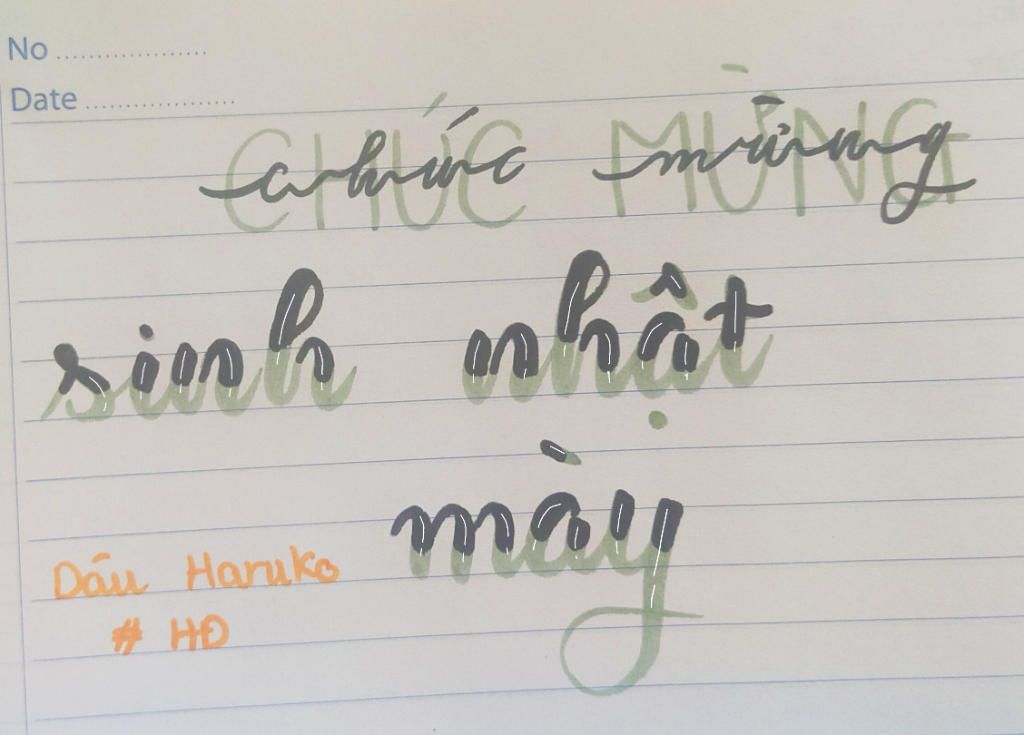 No ....................
Date ....................
CHÚC MỪNG
chúc mừng
sinh nhật
mày
Dâu Haruko
# HĐ